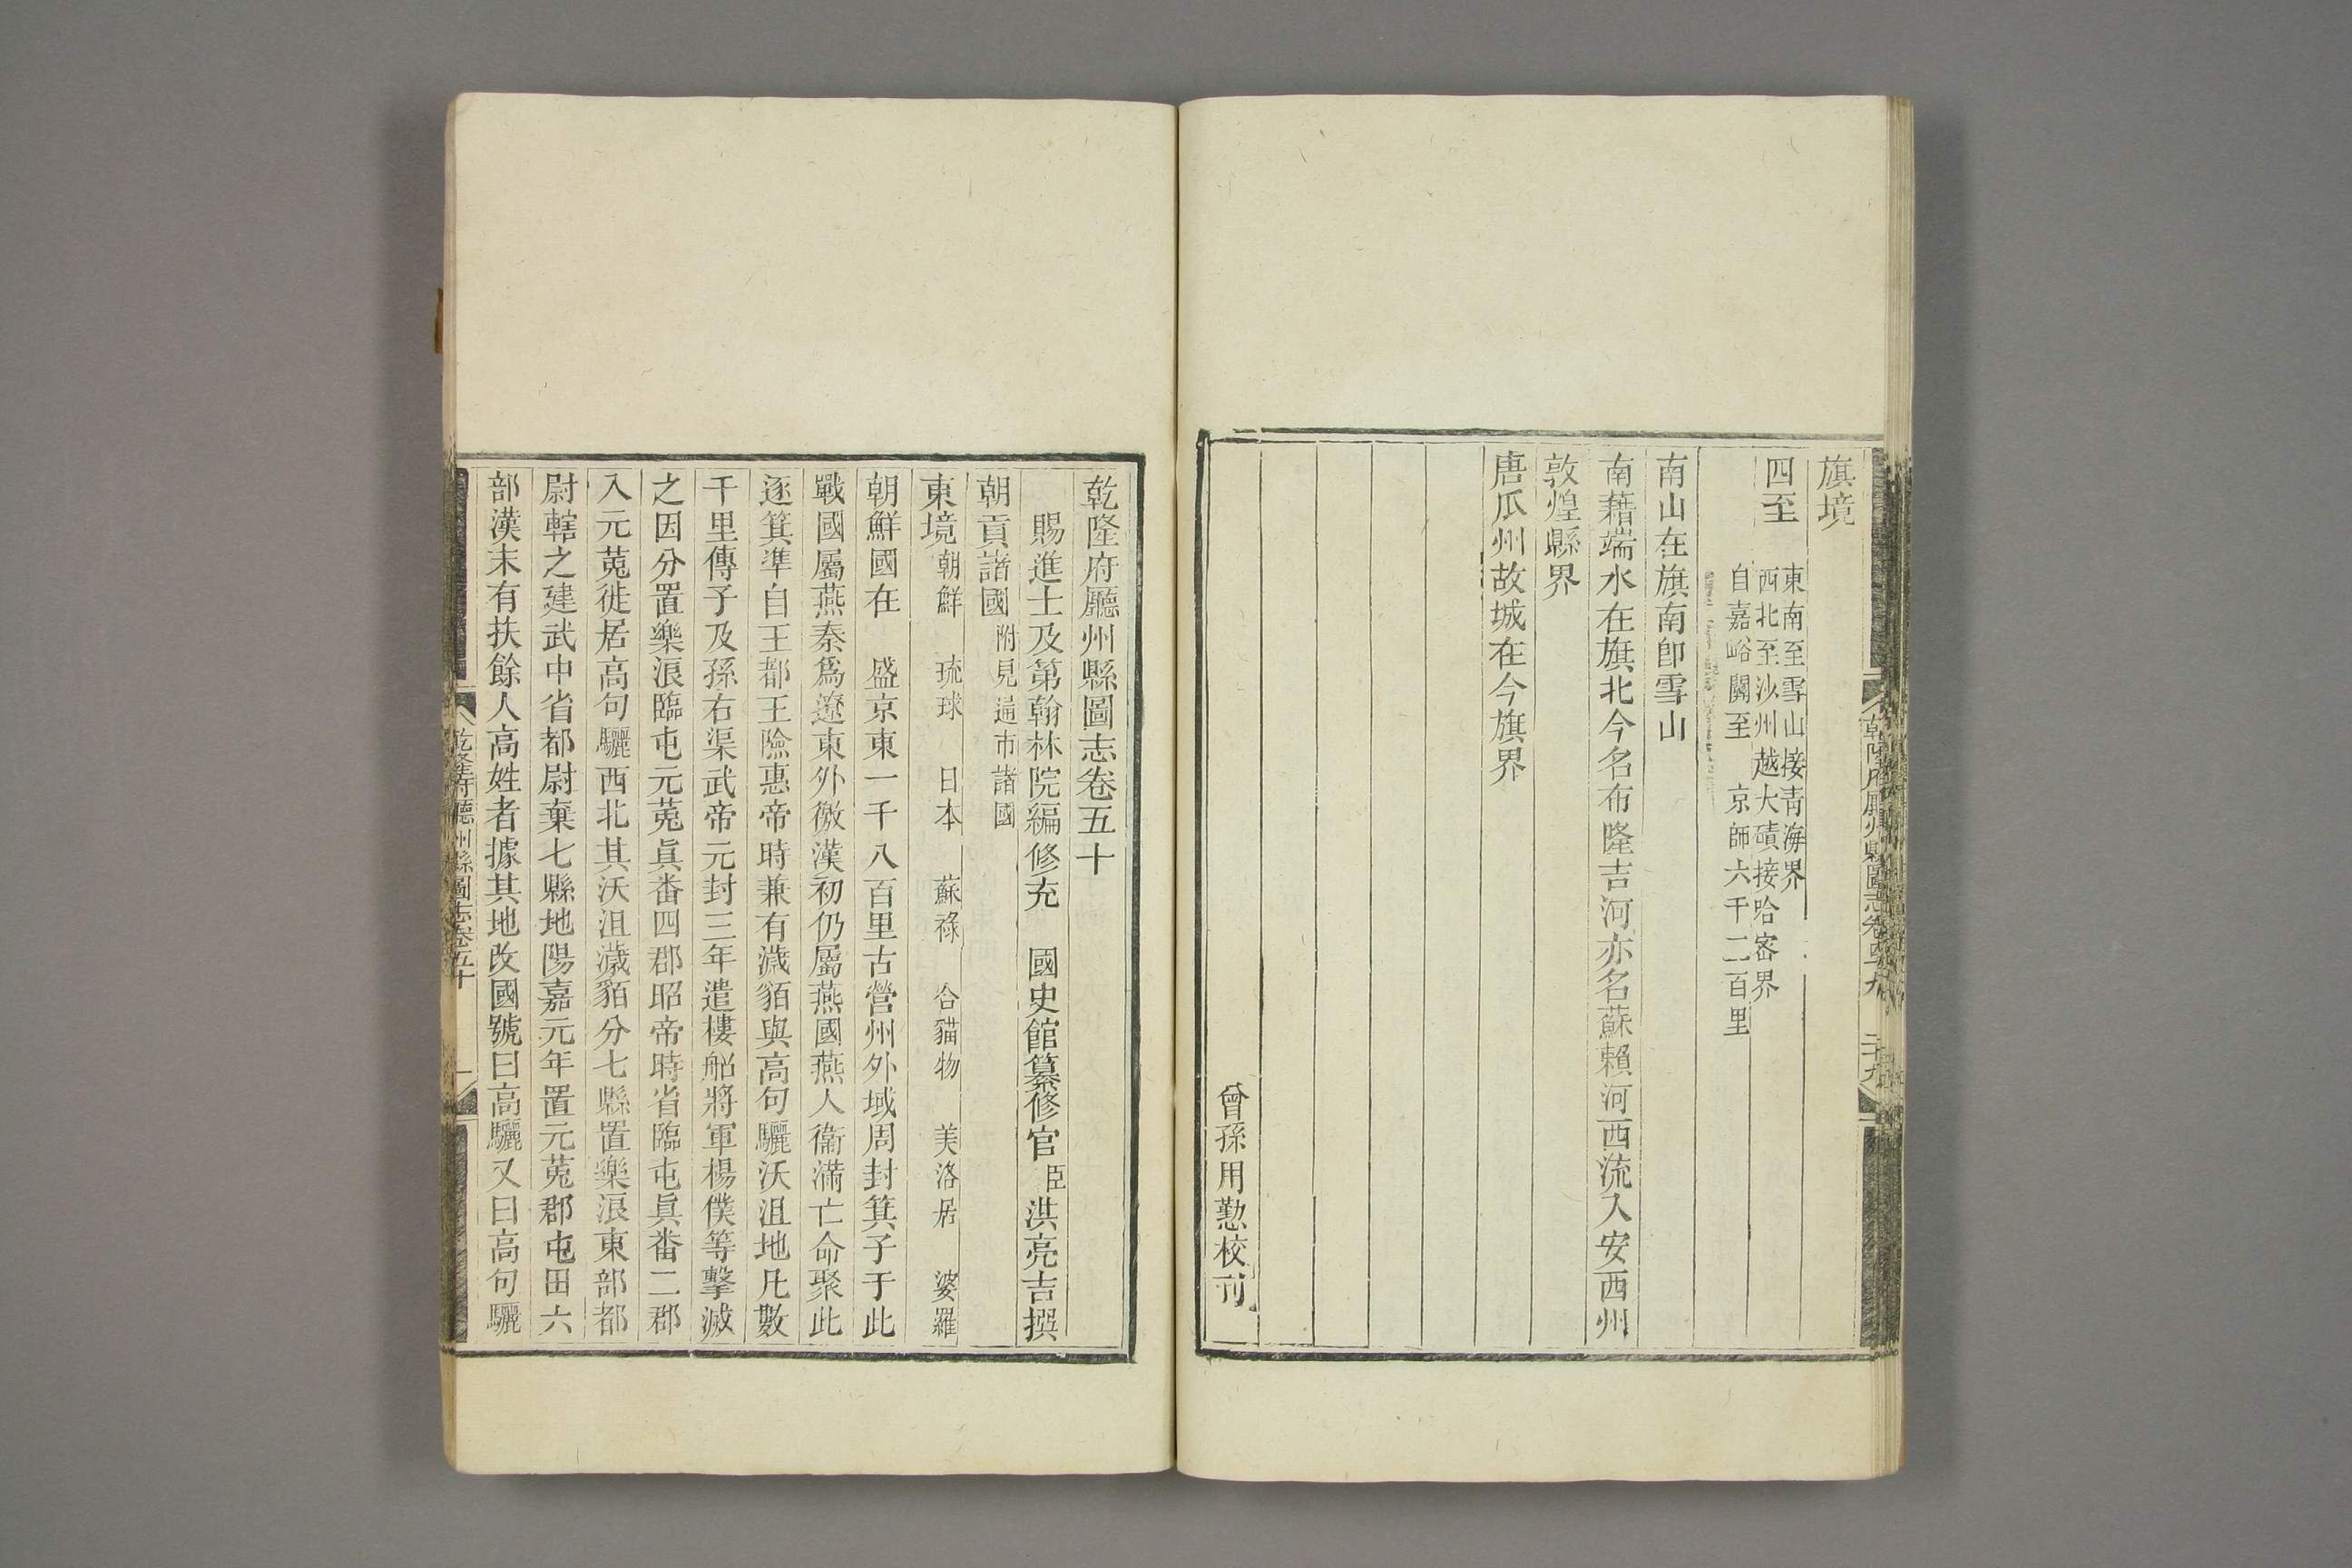 旗境
四至
東南至雪山接青海界
西北至沙州越大磧接哈密界
自嘉峪關至 京師六千二百里
南山在旗南卽雪山
南藉端水在旗北今名布隆吉河亦名蘇賴河西流入安西州
敦煌縣界
唐瓜州故城在今旗界
曾孫用懃校刊
乾隆府廳州縣圖志卷五十
賜進士及第翰林院編修充 國史館纂修官臣洪亮吉撰
朝貢諸國 附見通市諸國
東境 朝鮮 琉球 日本 蘇祿 合貓物 美洛居 婆羅
朝鮮國在 盛京東一千八百里古營州外域周封箕子于此
戰國屬燕秦爲遼東外徼漢初仍屬燕國燕人衞滿亡命聚此
逐箕準自王都王險惠帝時兼有濊貊與高句驪沃沮地凡數
千里傳子及孫右渠武帝元封三年遣樓船將軍楊僕等擊滅
之因分置樂浪臨屯元菟眞番四郡昭帝時省臨屯眞番二郡
入元菟徙居高句驪西北其沃沮濊貊分七縣置樂浪東部都
尉轄之建武中省都尉棄七縣地陽嘉元年置元菟郡屯田六
部漢末有扶餘人高姓者據其地改國號曰高驪又曰高句驪
乾隆府廳州縣圖志卷五十
一